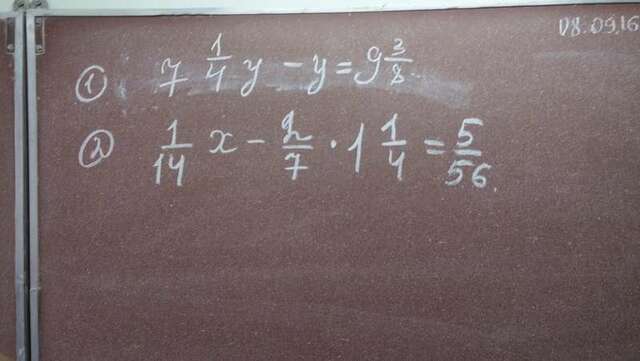 08.09.16
① 7 1/4 y - y = 9 3/8
② 1/14 x - 2/7 · 1 1/4 = 5/56.